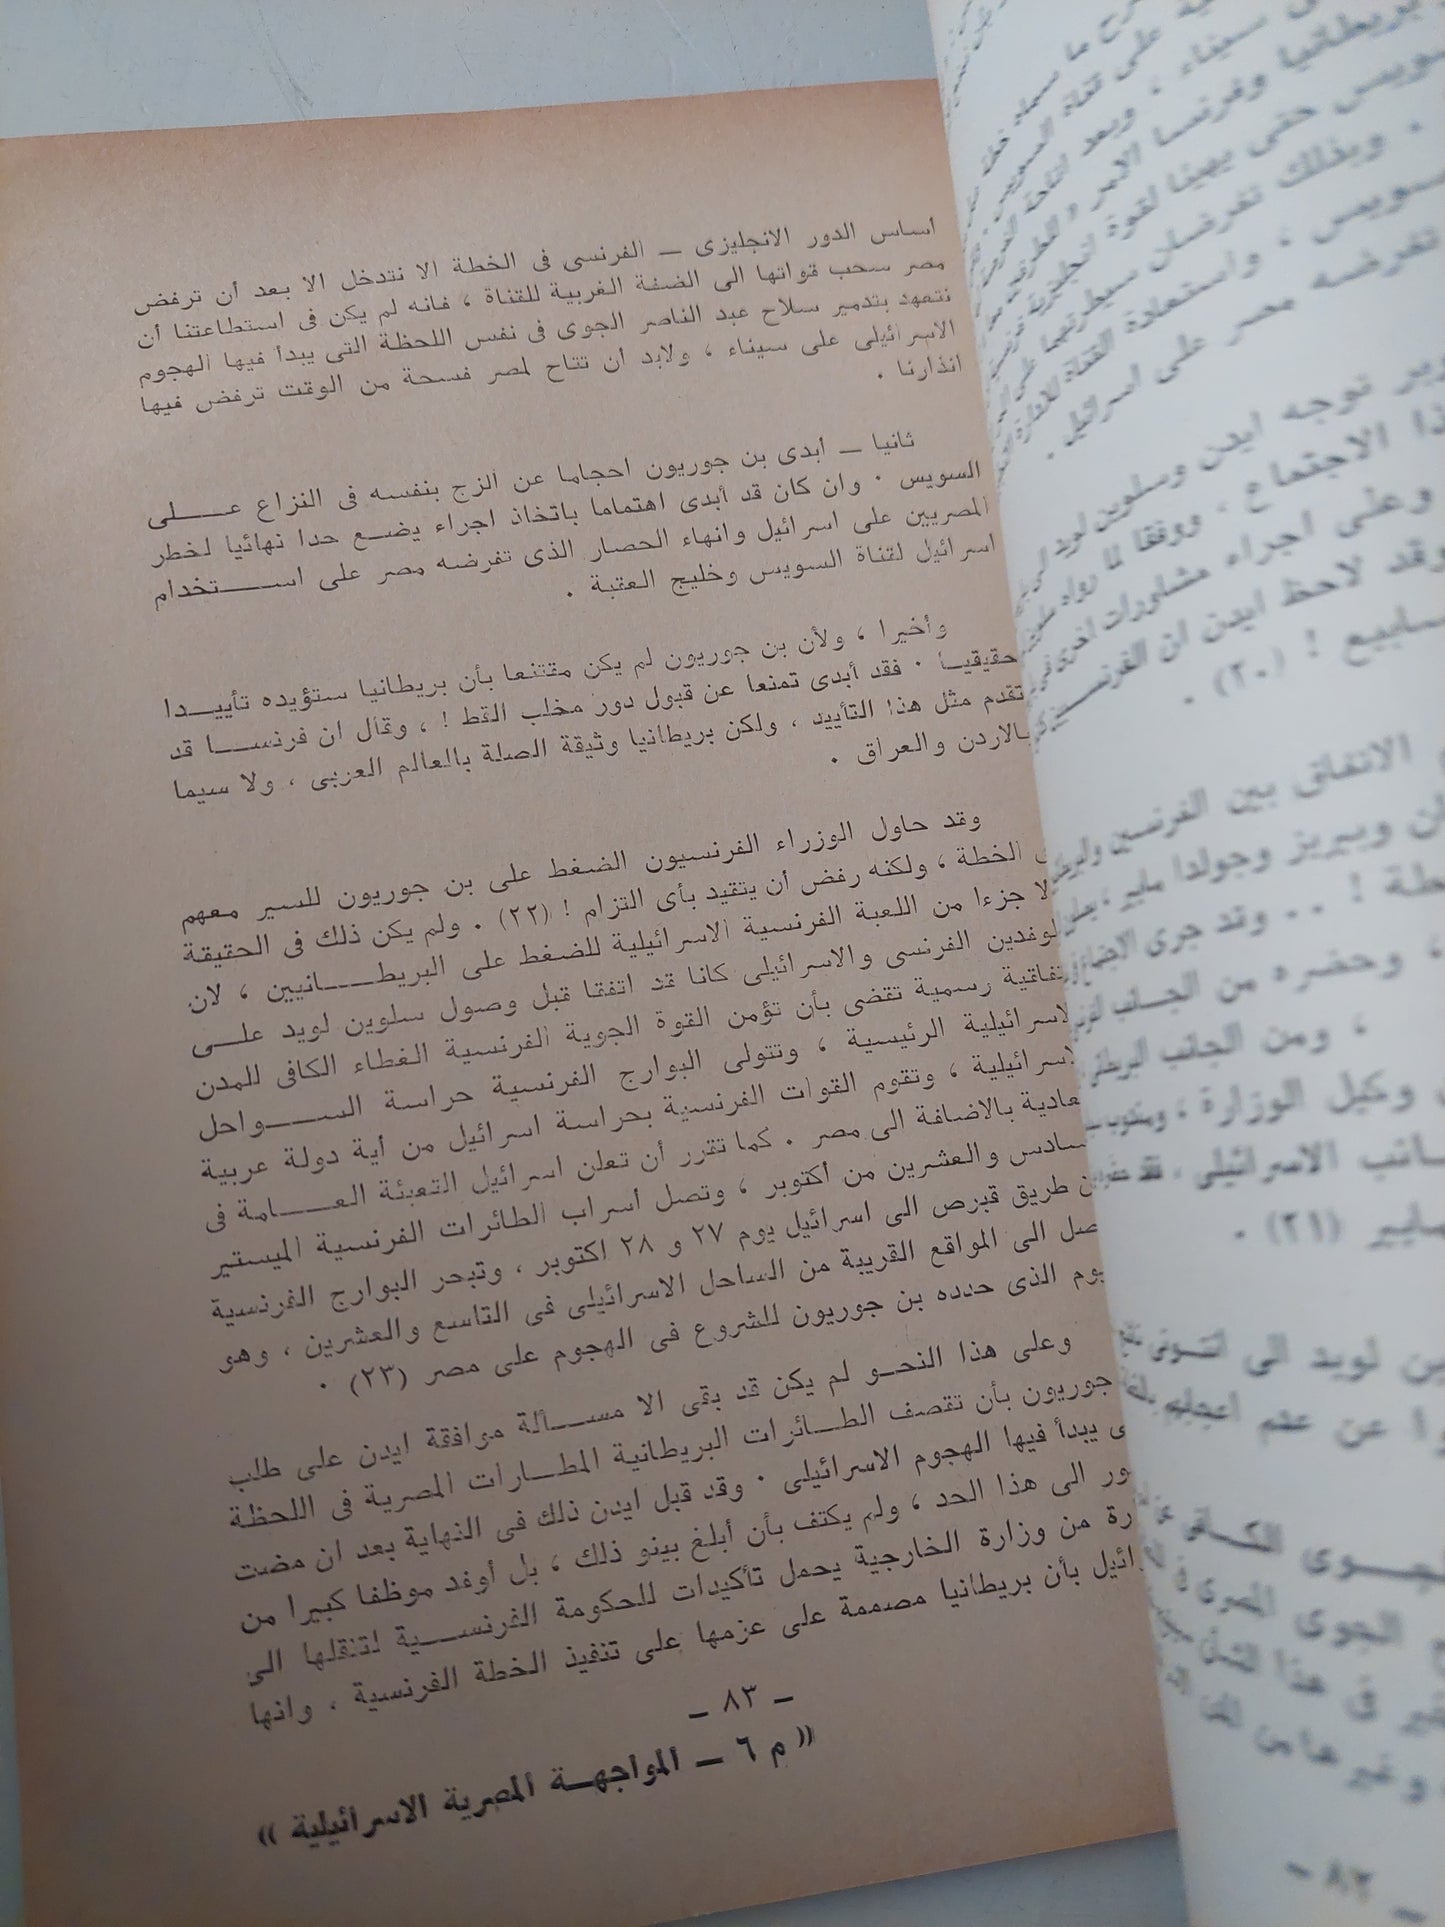 أساس الدور الانجليزى ــ الفرنسى فى الخطة الا نتدخل الا بعد أن ترفض
مصر سحب قواتها الى الضفة الغربية للقناة ، فانه لم يكن فى استطاعتنا أن
نتعهد بتدمير سلاح عبد الناصر الجوى فى نفس اللحظة التى يبدأ فيها الهجوم
الاسرائيلى على سيناء ، ولابد أن تتاح لمصر فسحة من الوقت ترفض فيها
انذارنا .
ثانيا ــ أبدى بن جوريون احجاما عن الزج بنفسه فى النزاع على
السويس . وان كان قد أبدى اهتماما باتخاذ اجراء يضع حدا نهائيا لخطر
المصريين على اسرائيل وانهاء الحصار الذى تفرضه مصر على استخدام
اسرائيل لقناة السويس وخليج العقبة .
وأخيرا ، ولأن بن جوريون لم يكن مقتنعا بأن بريطانيا ستؤيده تأييدا
حقيقيا . فقد أبدى تمنعا عن قبول دور مخلب القط ! ، وقال ان فرنسا قد
تقدم مثل هذا التأييد ، ولكن بريطانيا وثيقة الصلة بالعالم العربى ، ولا سيما
بالاردن والعراق .
وقد حاول الوزراء الفرنسيون الضغط على بن جوريون للسير معهم
الخطة ، ولكنه رفض أن يتقيد بأى التزام ! (٢٢) . ولم يكن ذلك فى الحقيقة
لا جزءا من اللعبة الفرنسية الاسرائيلية للضغط على البريطانيين ، لان
لوفدين الفرنسى والاسرائيلى كانا قد اتفقا قبل وصول سلوين لويد على
تفاقية رسمية تقضى بأن تؤمن القوة الجوية الفرنسية الغطاء الكافى للمدن
لاسرائيلية الرئيسية ، وتتولى البوارج الفرنسية حراسة السواحل
لاسرائيلية ، وتقوم القوات الفرنسية بحراسة اسرائيل من أية دولة عربية
عادية بالاضافة الى مصر . كما تقرر أن تعلن اسرائيل التعبئة العامة فى
سادس والعشرين من أكتوبر ، وتصل أسراب الطائرات الفرنسية الميستير
ن طريق قبرص الى اسرائيل يوم ٢٧ و ٢٨ اكتوبر ، وتبحر البوارج الفرنسية
صل الى المواقع القريبة من الساحل الاسرائيلى فى التاسع والعشرين ، وهو
يوم الذى حدده بن جوريون للشروع فى الهجوم على مصر (٢٣) .
وعلى هذا النحو لم يكن قد بقى الا مسألة موافقة ايدن على طلب
جوريون بأن تقصف الطائرات البريطانية المطارات المصرية فى اللحظة
ى يبدأ فيها الهجوم الاسرائيلى . وقد قبل ايدن ذلك فى النهاية بعد ان مضت
ور الى هذا الحد ، ولم يكتف بأن أبلغ بينو ذلك ، بل أوفد موظفا كبيرا من
ارة من وزارة الخارجية يحمل تأكيدات للحكومة الفرنسية لتنقلها الى
رائيل بأن بريطانيا مصممة على عزمها على تنفيذ الخطة الفرنسية ، وانها
ــ ٨٣ ــ
« م ٦ ــ المواجهة المصرية الاسرائيلية »
سيناء ، وبعد
بريطانيا وفرنسا
سويس حتى يهيئا لقوة انجليزية
. وبذلك تفرضان سيطرتهما على
سويس ، واستعادة القناة للادارة
تفرضه مصر على اسرائيل .
توجه ايدن وسلوين لويد
ذا الاجتماع ، ووفقا لما رواه
وعلى اجراء مشاورات اخرى
وقد لاحظ ايدن ان
سابيع ! (٢٠) .
الاتفاق بين الفرنسيين
ان وبيريز وجولدا مايير ،
طة ! .. وقد جرى الاجتماع
، وحضره من الجانب
، ومن الجانب البريطانى
وكيل الوزارة ،
انب الاسرائيلى ، فقد
مايير (٢١) .
ين لويد الى
وا عن عدم
ــ ٨٢ ــ